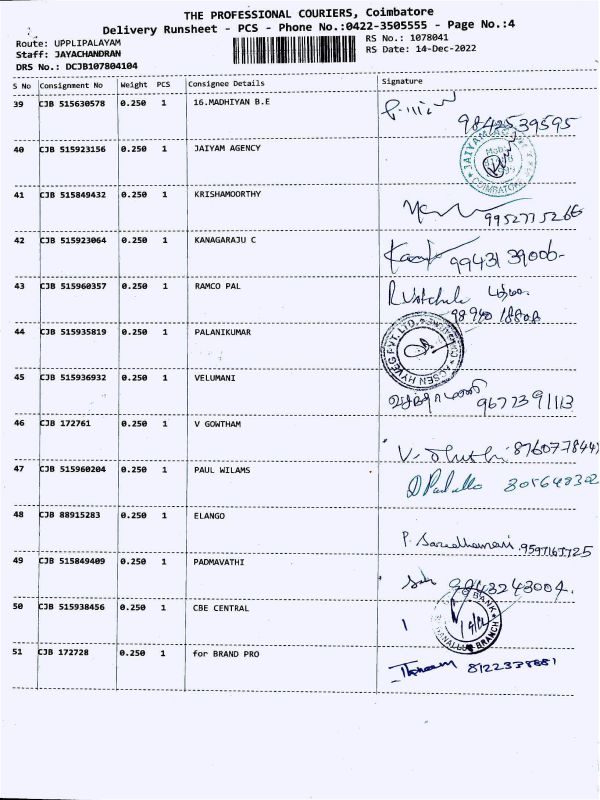 THE PROFESSIONAL COURIERS, Coimbatore
Delivery Runsheet - PCS - Phone No.:0422-3505555 - Page No.:4
Route: UPPLIPALAYAM
RS No.: 1078041
Staff: JAYACHANDRAN
RS Date: 14-Dec-2022
DRS No.: DCJB107804104
S No Consignment No Weight PCS Consignee Details Signature
39 CJB 515630578 0.250 1 16.MADHIYAN B.E
9842539595
40 CJB 515923156 0.250 1 JAIYAM AGENCY
41 CJB 515849432 0.250 1 KRISHAMOORTHY
9952775266
42 CJB 515923064 0.250 1 KANAGARAJU C
9943139006-
43 CJB 515960357 0.250 1 RAMCO PAL
98940 18808
44 CJB 515935819 0.250 1 PALANIKUMAR
ACSEN HYVEG PVT.LTD.
45 CJB 515936932 0.250 1 VELUMANI
9677391113
46 CJB 172761 0.250 1 V GOWTHAM
876077844
47 CJB 515960204 0.250 1 PAUL WILAMS
48 CJB 88915283 0.250 1 ELANGO
49 CJB 515849409 0.250 1 PADMAVATHI
9843243004.
50 CJB 515938456 0.250 1 CBE CENTRAL
BANK
BRANCH
51 CJB 172728 0.250 1 for BRAND PRO